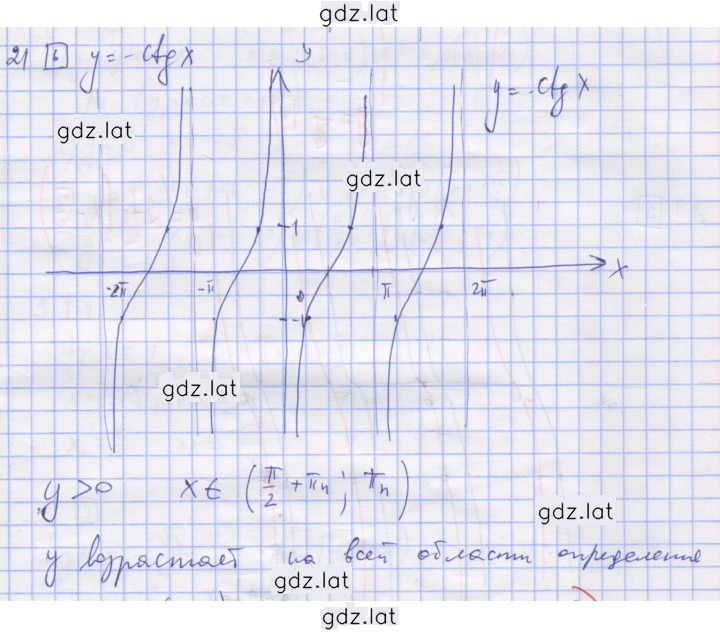 gdz.lat
21 в y = -ctg x y
y = -ctg x
gdz.lat
gdz.lat
1
x
-2π -π 0 π 2π
-1
gdz.lat
y > 0 x ∈ (π/2 + πn ; πn)
gdz.lat
y возрастает на всей области определения
gdz.lat
gdz.lat